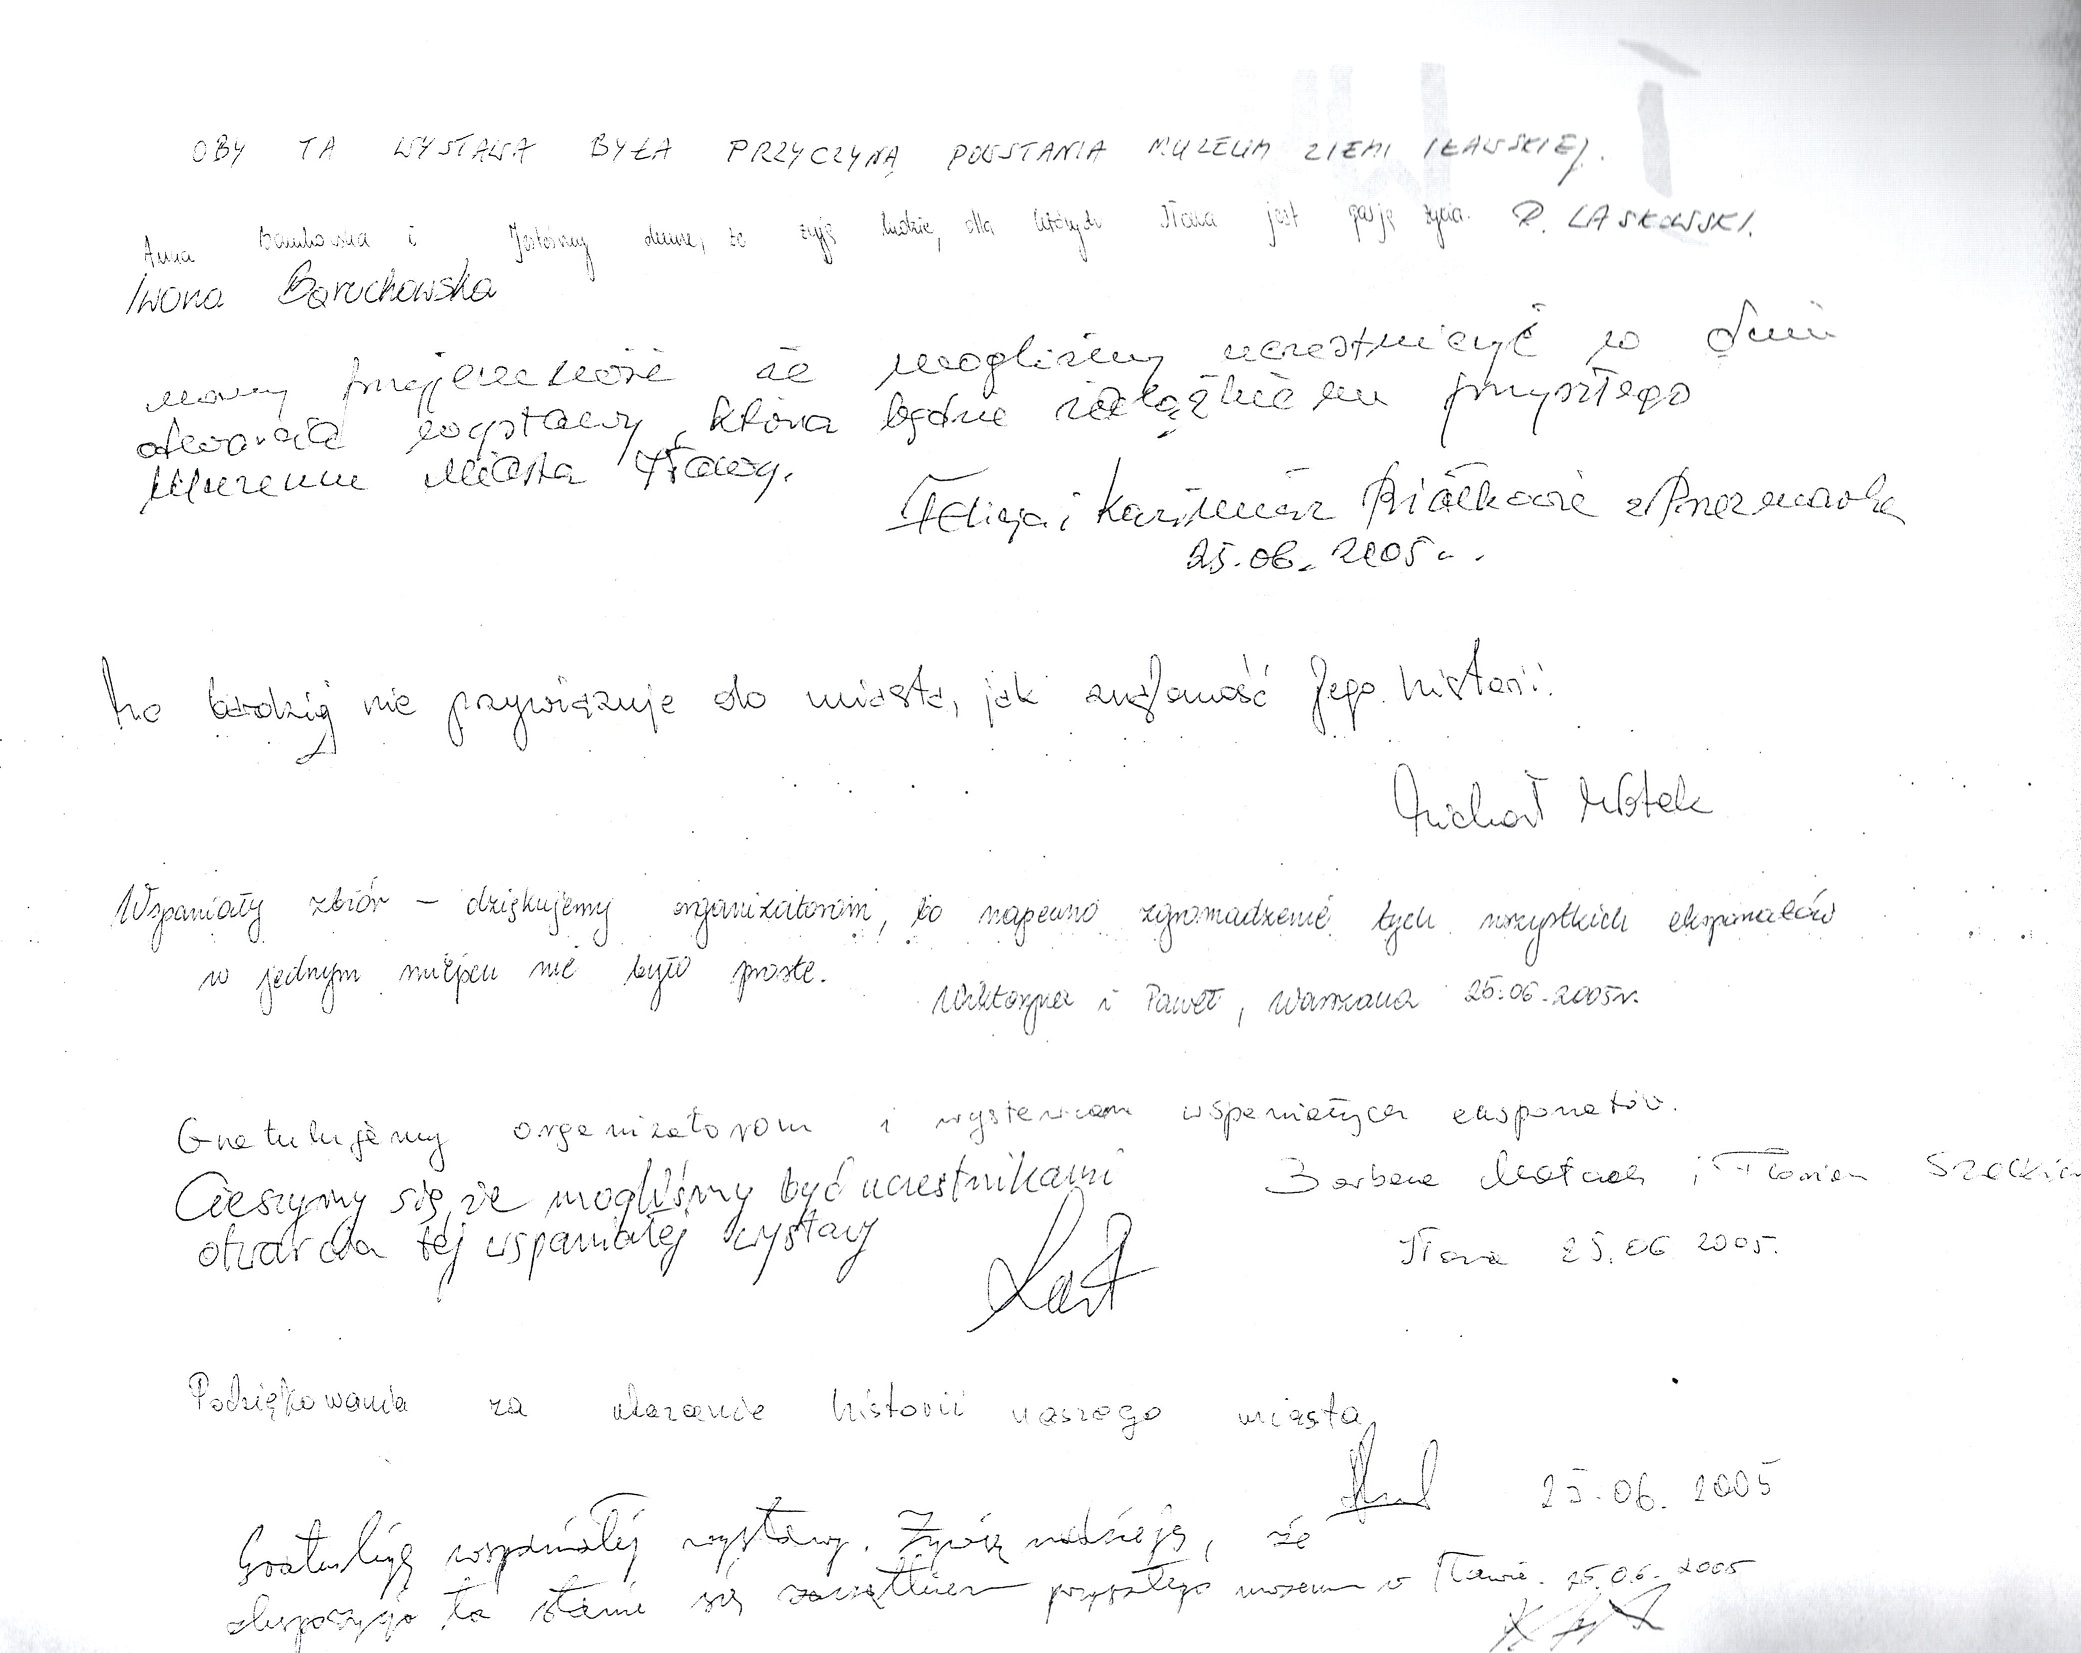 OBY TA WYSTAWA BYŁA PRZYCZYNĄ POWSTANIA MUZEUM ZIEMI IŁAWSKIEJ.
R. LASKOWSKI.
Anna i Jesteśmy dumne, że żyją ludzie, dla których Iława jest pasją życia.
Iwona Baruchowska
mamy przyjemność że mogliśmy uczestniczyć w dniu
otwarcia wystawy, która będzie zalążkiem przyszłego
Muzeum Miasta Iławy.
Felicja i Kazimierz z Przezmarka
25.06.2005r.
Nic bardziej nie przywiązuje do miasta, jak znajomość Jego historii.
Michał
Wspaniały zbiór – dziękujemy organizatorom, bo napewno zgromadzenie tych wszystkich eksponatów
w jednym miejscu nie było proste.
Wiktoryna i Paweł, Warszawa 25.06.2005r.
Gratulujemy organizatorom i wystawcom wspaniałych eksponatów.
Barbara i Florian
Iława 25.06 2005.
Cieszymy się że mogliśmy być uczestnikami
otwarcia tej wspaniałej wystawy
Podziękowania za ukazanie historii naszego miasta
25.06.2005
Gratuluję wspaniałej wystawy. Żywię nadzieję, że
ekspozycja ta stanie się zaczątkiem przyszłego muzeum w Iławie. 25.06.2005